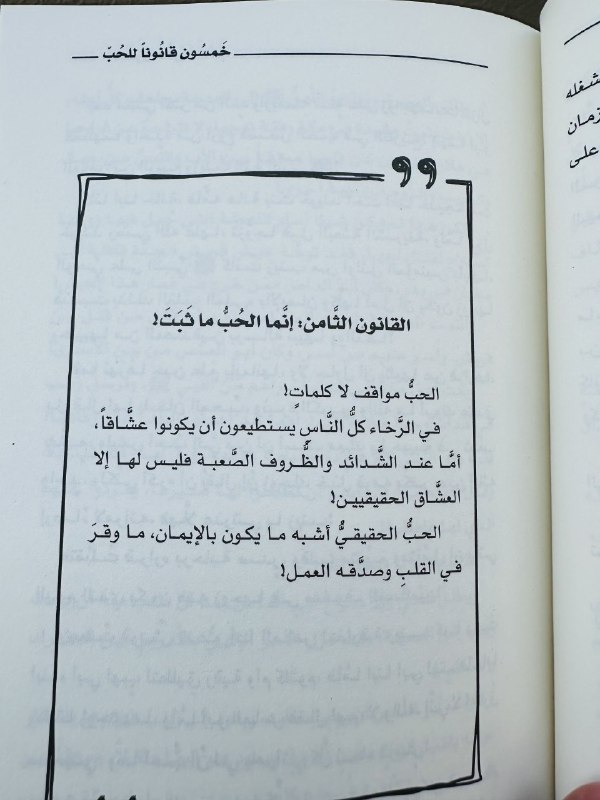 خَمسُون قانُوناً للحُبّ
القانون الثَّامن: إنَّما الحُبُّ ما ثَبَتَ!
الحبُّ مواقف لا كلماتٍ!
في الرَّخاء كلُّ النَّاسِ يستطيعون أن يكونوا عشَّاقاً،
أمَّا عند الشَّدائد والظُّروف الصَّعبة فليس لها إلا
العشَّاق الحقيقيين!
الحبُّ الحقيقيُّ أشبه ما يكون بالإيمان، ما وقرَ
في القلبِ وصدَّقه العمل!
شغله
زمان
على